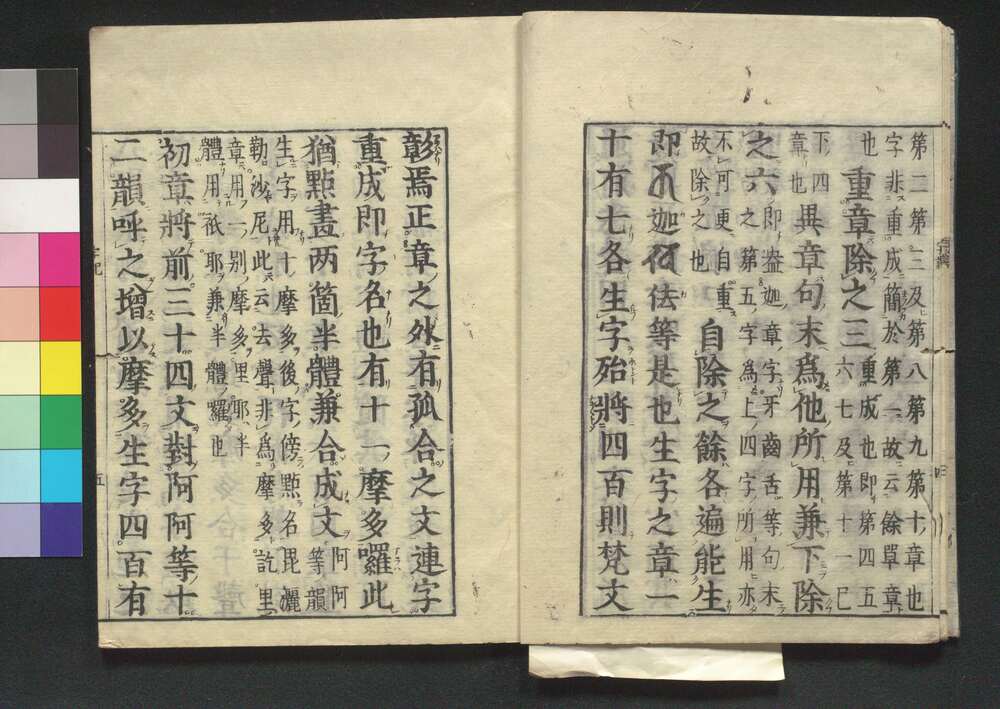 第二第三及第八第九第十章也
字非重成簡於第一故云餘單章
也重章除之三重成也即第四五
六七及第十一已
下四
章也異章句末為他所用兼下除
之六即盎迦章字牙齒舌等句末
之第五字為上四字所用亦
不可更自重
故除之也自除之餘各遍能生
即迦佉等是也生字之章一
十有七各生字殆將四百則梵文
彰焉正章之外有孤合之文連字
重成即字名也有十一摩多囉此
猶點畫两箇半體兼合成文阿阿
等韻
生字用十摩多後字傍點名毘灑
勒沙尼此云去聲非為摩多訖里
章用一別摩多里耶半
體用祇耶兼半體囉也
初章將前三十四文對阿阿等十
二韻呼之增以摩多生字四百有
字記
五